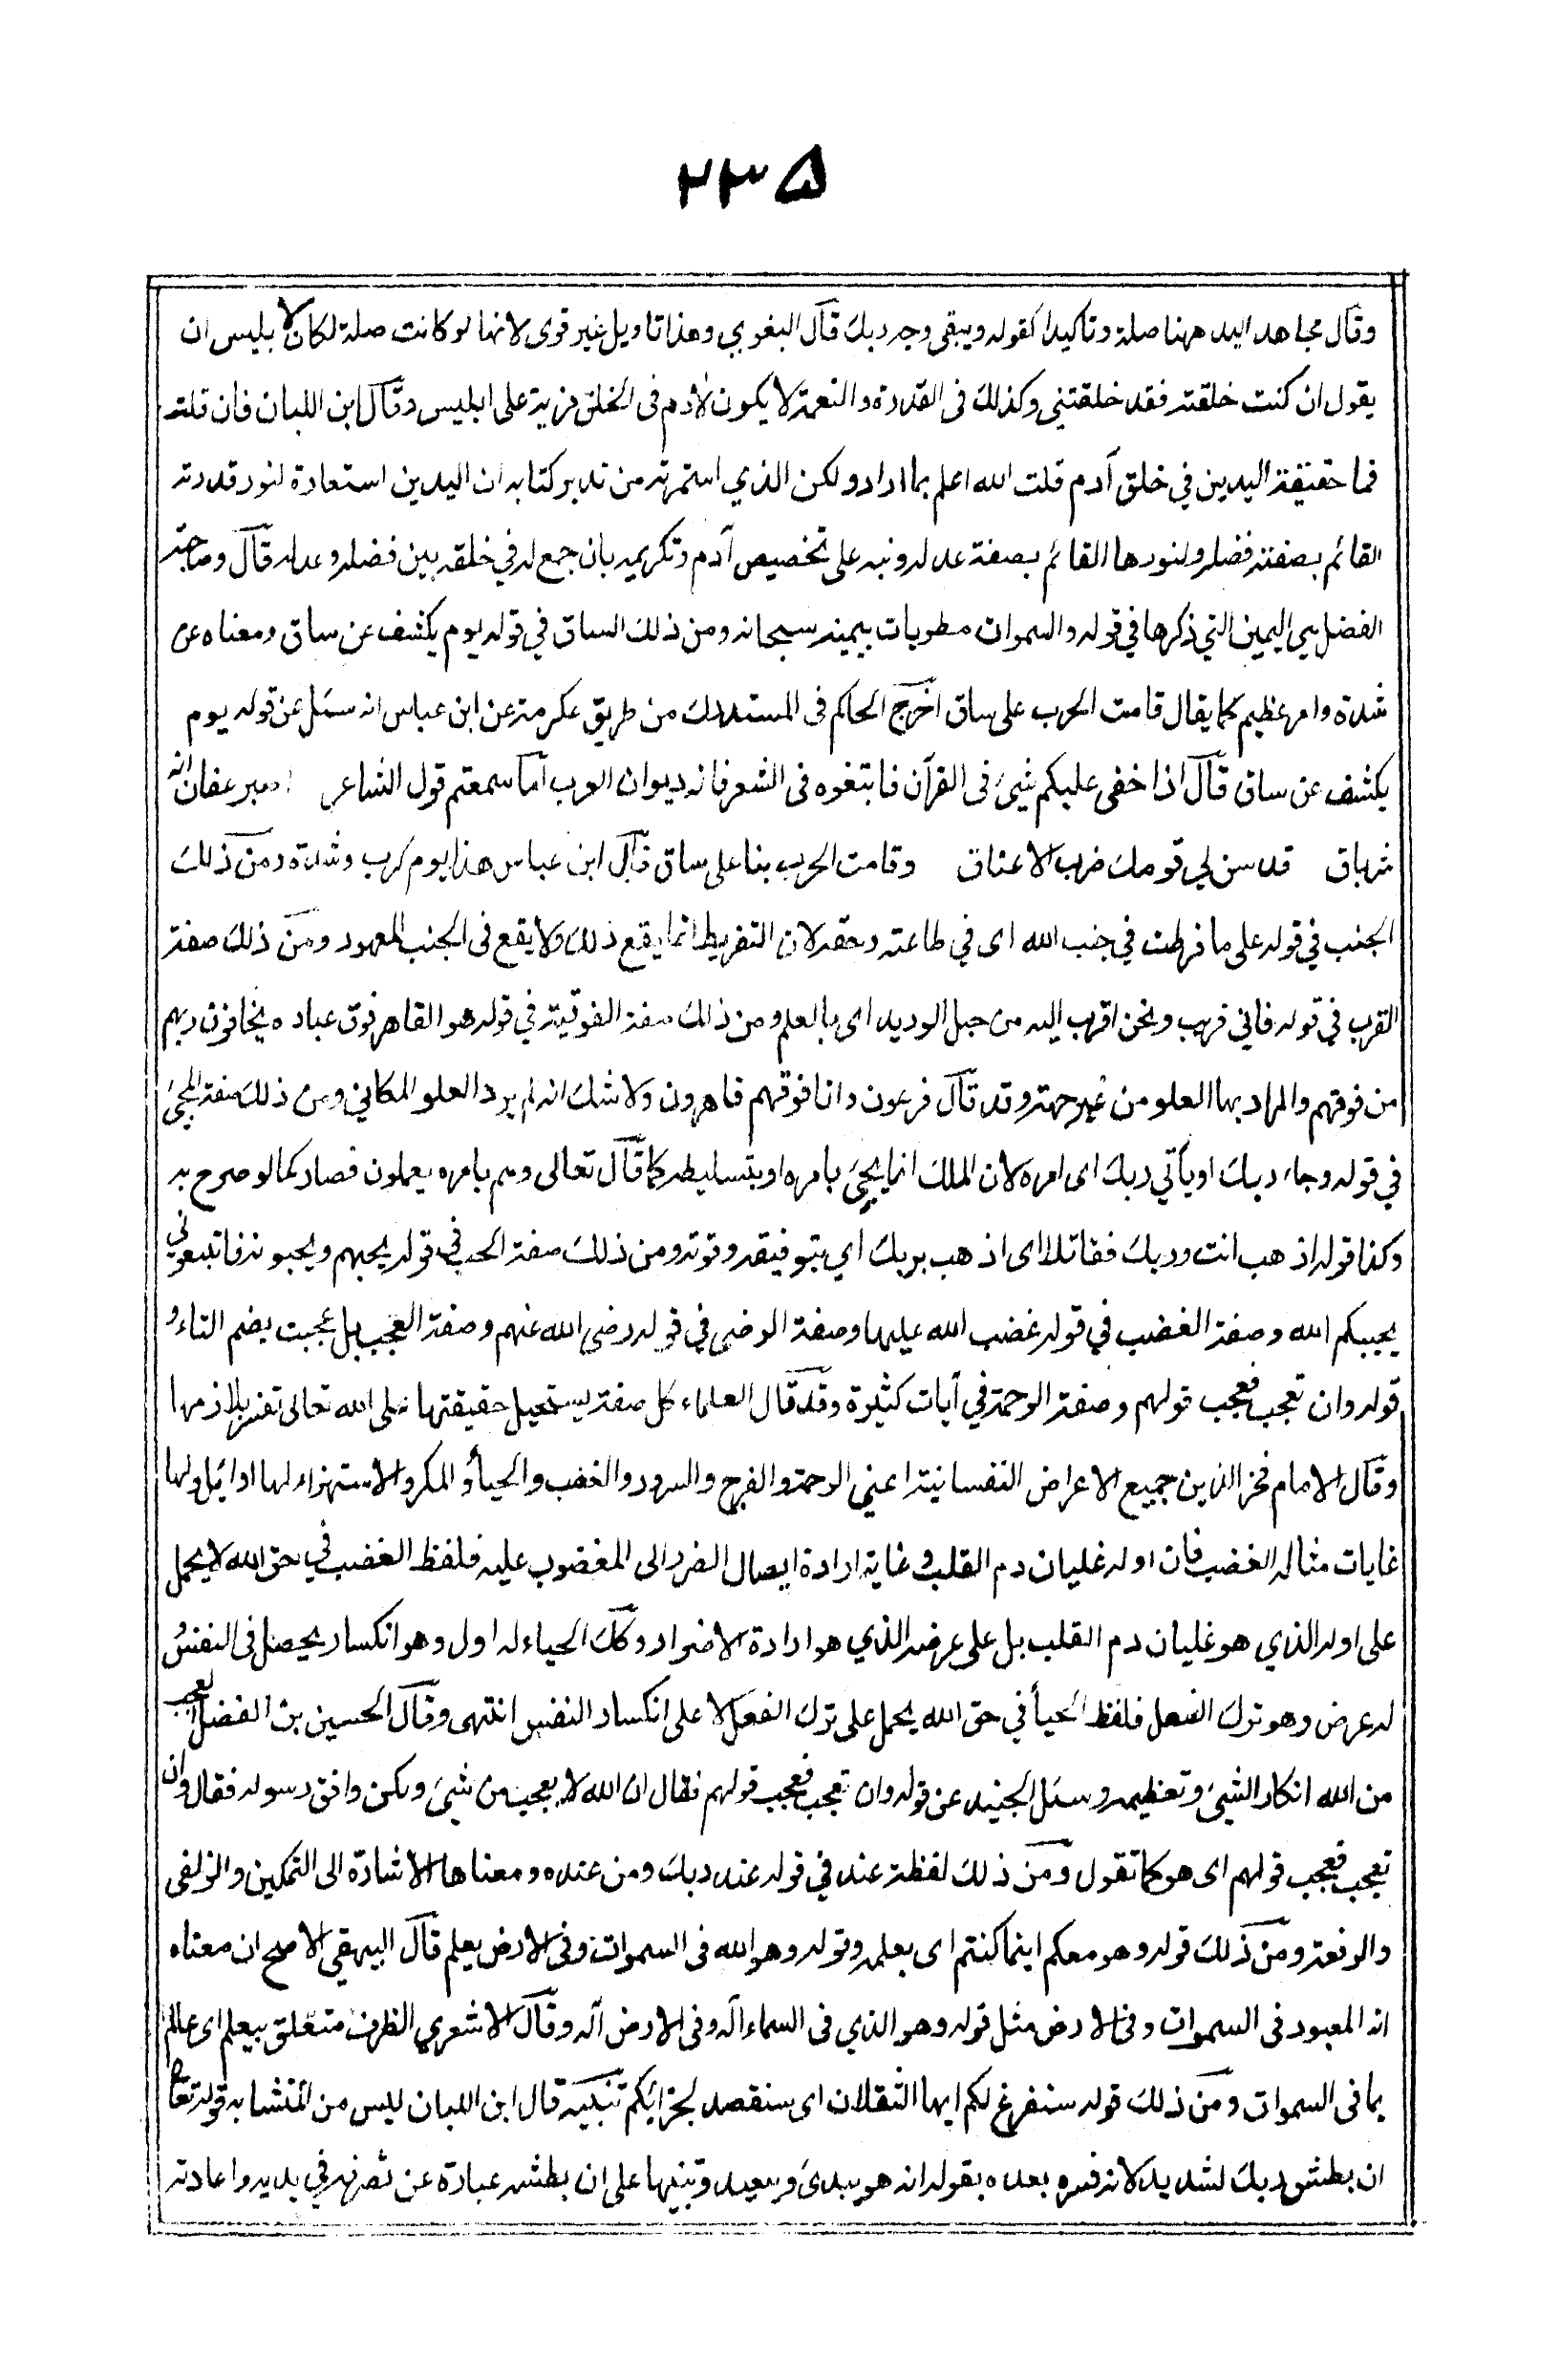 ۲۳۵
وقال مجاهد اليد ههنا صلة وتاكيدا كقوله ويبقى وجه ربك قال البغوي وهذا تاويل غير قوى لانها لو كانت صلة لكان لابليس ان
يقول ان كنت خلقته فقد خلقتنى وكذلك فى القدرة والنعمة لا يكون لأدم فى الخلق مزية على ابليس وقال ابن اللبان فان قلت
فما حقيقة اليدين في خلق آدم قلت الله اعلم بما اراد ولكن الذي استمرته من تدبر كتابه ان اليدين استعارة لنور قدرته
القائم بصفة فضله ولنورها القائم بصفة عدله ونبه على تخصيص آدم وتكريمه بان جمع له في خلقه بين فضله وعدله قال وصاحبة
الفضل هي اليمين التي ذكرها في قوله والسموات مطويات بيمينه سبحانه ومن ذلك الساق في قوله يوم يكشف عن ساق ومعناه عن
شدة وامر عظيم كما يقال قامت الحرب على ساق اخرج الحاكم فى المستدرك من طريق عكرمة عن ابن عباس انه سئل عن قوله يوم
يكشف عن ساق قال اذا خفى عليكم شيئ فى القرآن فابتغوه فى الشعر فانه ديوان العرب أما سمعتم قول الشاعر اصبر عفان انه
شرباق قد سن لي قومك ضرب الاعناق وقامت الحرب بنا على ساق قال ابن عباس هذا يوم كرب وشدة ومن ذلك
الجنب في قوله على ما فرطت في جنب الله اى في طاعته وحقه لان التفريط انما يقع ذلك ولا يقع فى الجنب المعهود ومن ذلك صفة
القرب في قوله فاني قريب ونحن اقرب اليه من حبل الوريد اى بالعلم ومن ذلك صفة الفوقية في قوله هو القاهر فوق عباده يخافون ربهم
من فوقهم والمراد بها العلو من غير جهة وقد قال فرعون وانا فوقهم قاهرون ولا شك انه لم يرد العلو المكاني ومن ذلك صفة المجئ
في قوله وجاء ربك او يأتي ربك اى امره لان الملك انما يجئ بامره او بتسليطه كما قال تعالى وهم بامره يعملون فصار كما لو صرح به
وكذا قوله اذهب انت وربك فقاتلا اى اذهب بربك اي بتوفيقه وقوته ومن ذلك صفة الحب في قوله يحبهم ويحبونه فاتبعوني
يحببكم الله وصفة الغضب في قوله غضب الله عليها وصفة الرضى في قوله رضى الله عنهم وصفة العجب بل عجبت بضم التاء و
قوله وان تعجب فعجب قولهم وصفة الرحمة في آيات كثيرة وقد قال العلماء كل صفة يستحيل حقيقتها على الله تعالى تفسر بلازمها
وقال الامام فخر الدين جميع الاعراض النفسانية اعني الرحمة والفرح والسرور والغضب والحيأ والمكر والاستهزاء لها اوائل ولها
غايات مثاله الغضب فان اوله غليان دم القلب وغايته ارادة ايصال الضرر الى المغضوب عليه فلفظ الغضب في حق الله لا يحمل
على اوله الذي هو غليان دم القلب بل على عرضه الذي هو ارادة الاضرار وكك الحياء له اول وهو انكسار يحصل فى النفس و
له عرض وهو ترك الفعل فلفظ الحيأ في حق الله يحمل على ترك الفعل لا على انكسار النفس انتهى وقال الحسين بن الفضل العجب
من الله انكار الشيئ وتعظيمه وسئل الجنيد عن قوله وان تعجب فعجب قولهم فقال ان الله لا يعجب من شيئ ولكن وافق رسوله فقال وان
تعجب فعجب قولهم اى هو كما تقول ومن ذلك لفظة عند في قوله عند ربك ومن عنده ومعناها الاشارة الى التمكين والزلفى
والرفعة ومن ذلك قوله وهو معكم اينما كنتم اى بعلمه وقوله وهو الله فى السموات وفى الارض يعلم قال البيهقي الاصح ان معناه
انه المعبود فى السموات وفى الارض مثل قوله وهو الذي فى السماء آله وفى الارض آله وقال الاشعري الظرف متعلق بيعلم اى عالم
بما فى السموات ومن ذلك قوله سنفرغ لكم ايها الثقلان اى سنقصد لجزائكم تنبيه قال ابن اللبان ليس من المتشابه قوله تعالى
ان بطش ربك لشديد لانه فسره بعده بقوله انه هو يبدئ ويعيد وتنبيها على ان بطشه عبارة عن تصرفه في بديه واعادته